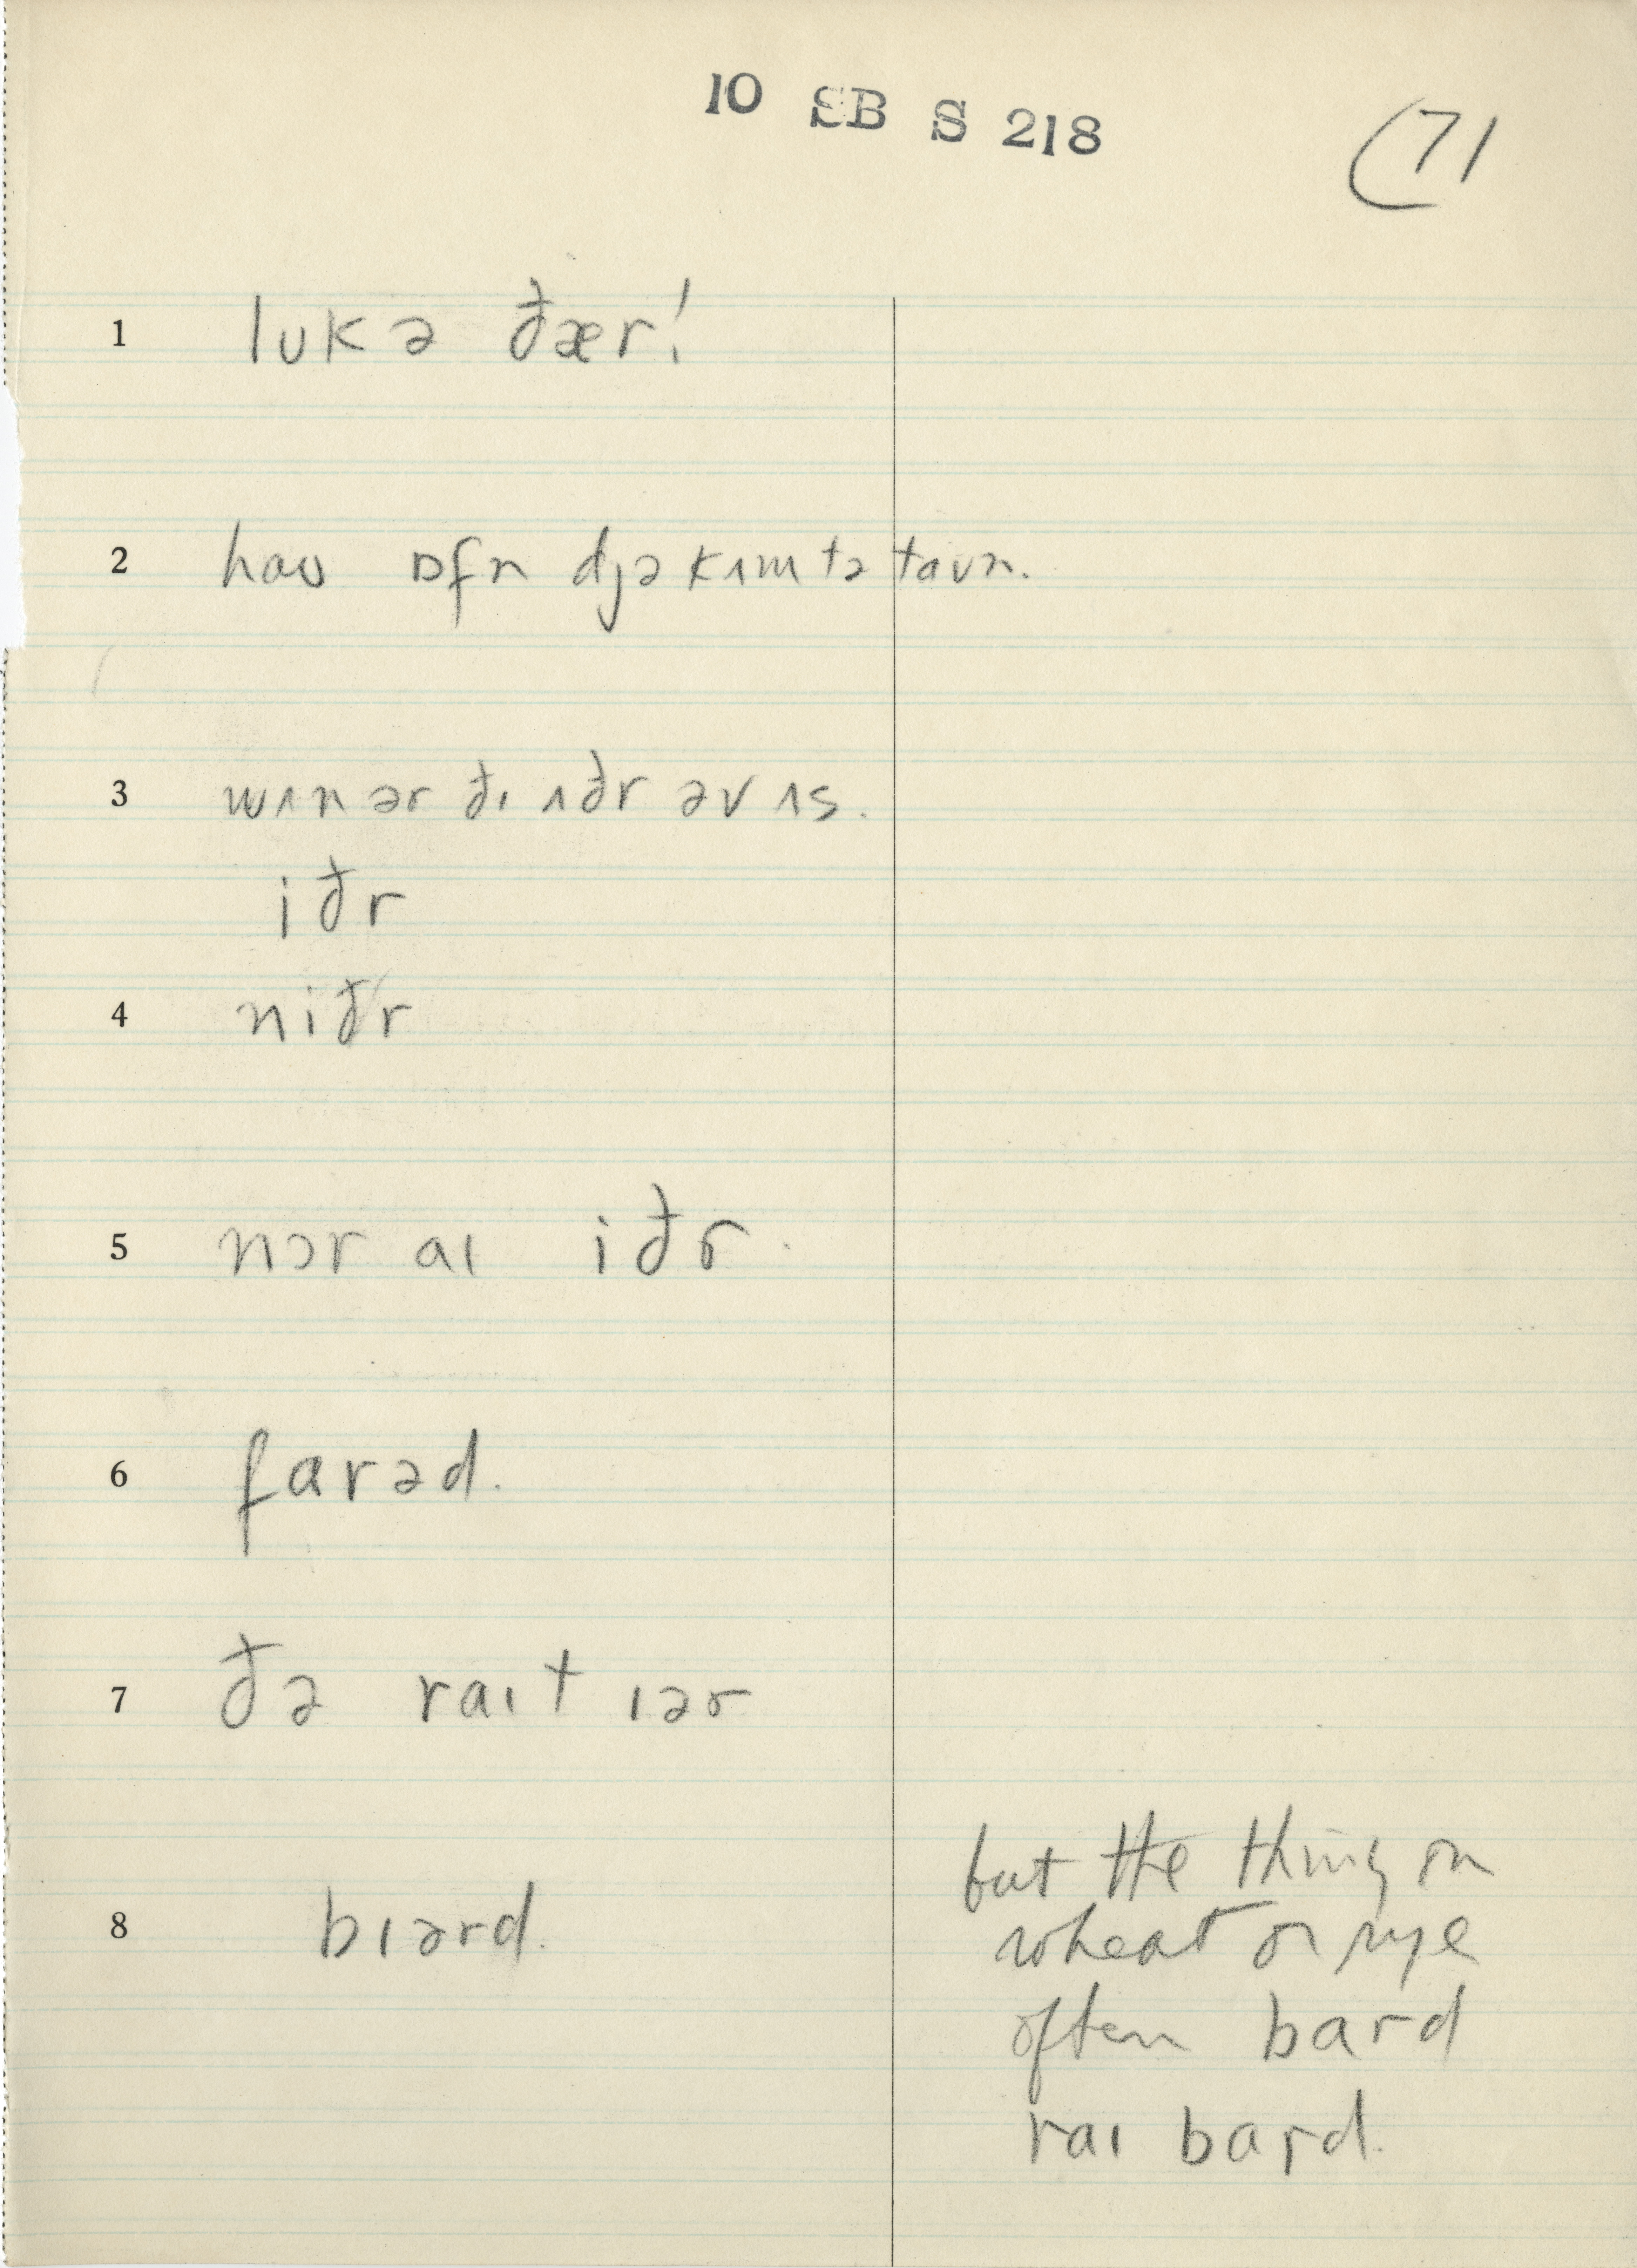 10 SB S 218
(71
1 lʊkə ðær!
2 haʊ ɒfn djə kʌm tə taʊn.
3 wʌn ər ðɪ ʌðr əv ʌs.
iðr
4 niðr
5 nɔr aɪ iðr.
6 farəd.
7 ðə raɪt ɪər
8 bɪərd.
but the thing on
wheat or rye
often bard
raɪ bard.